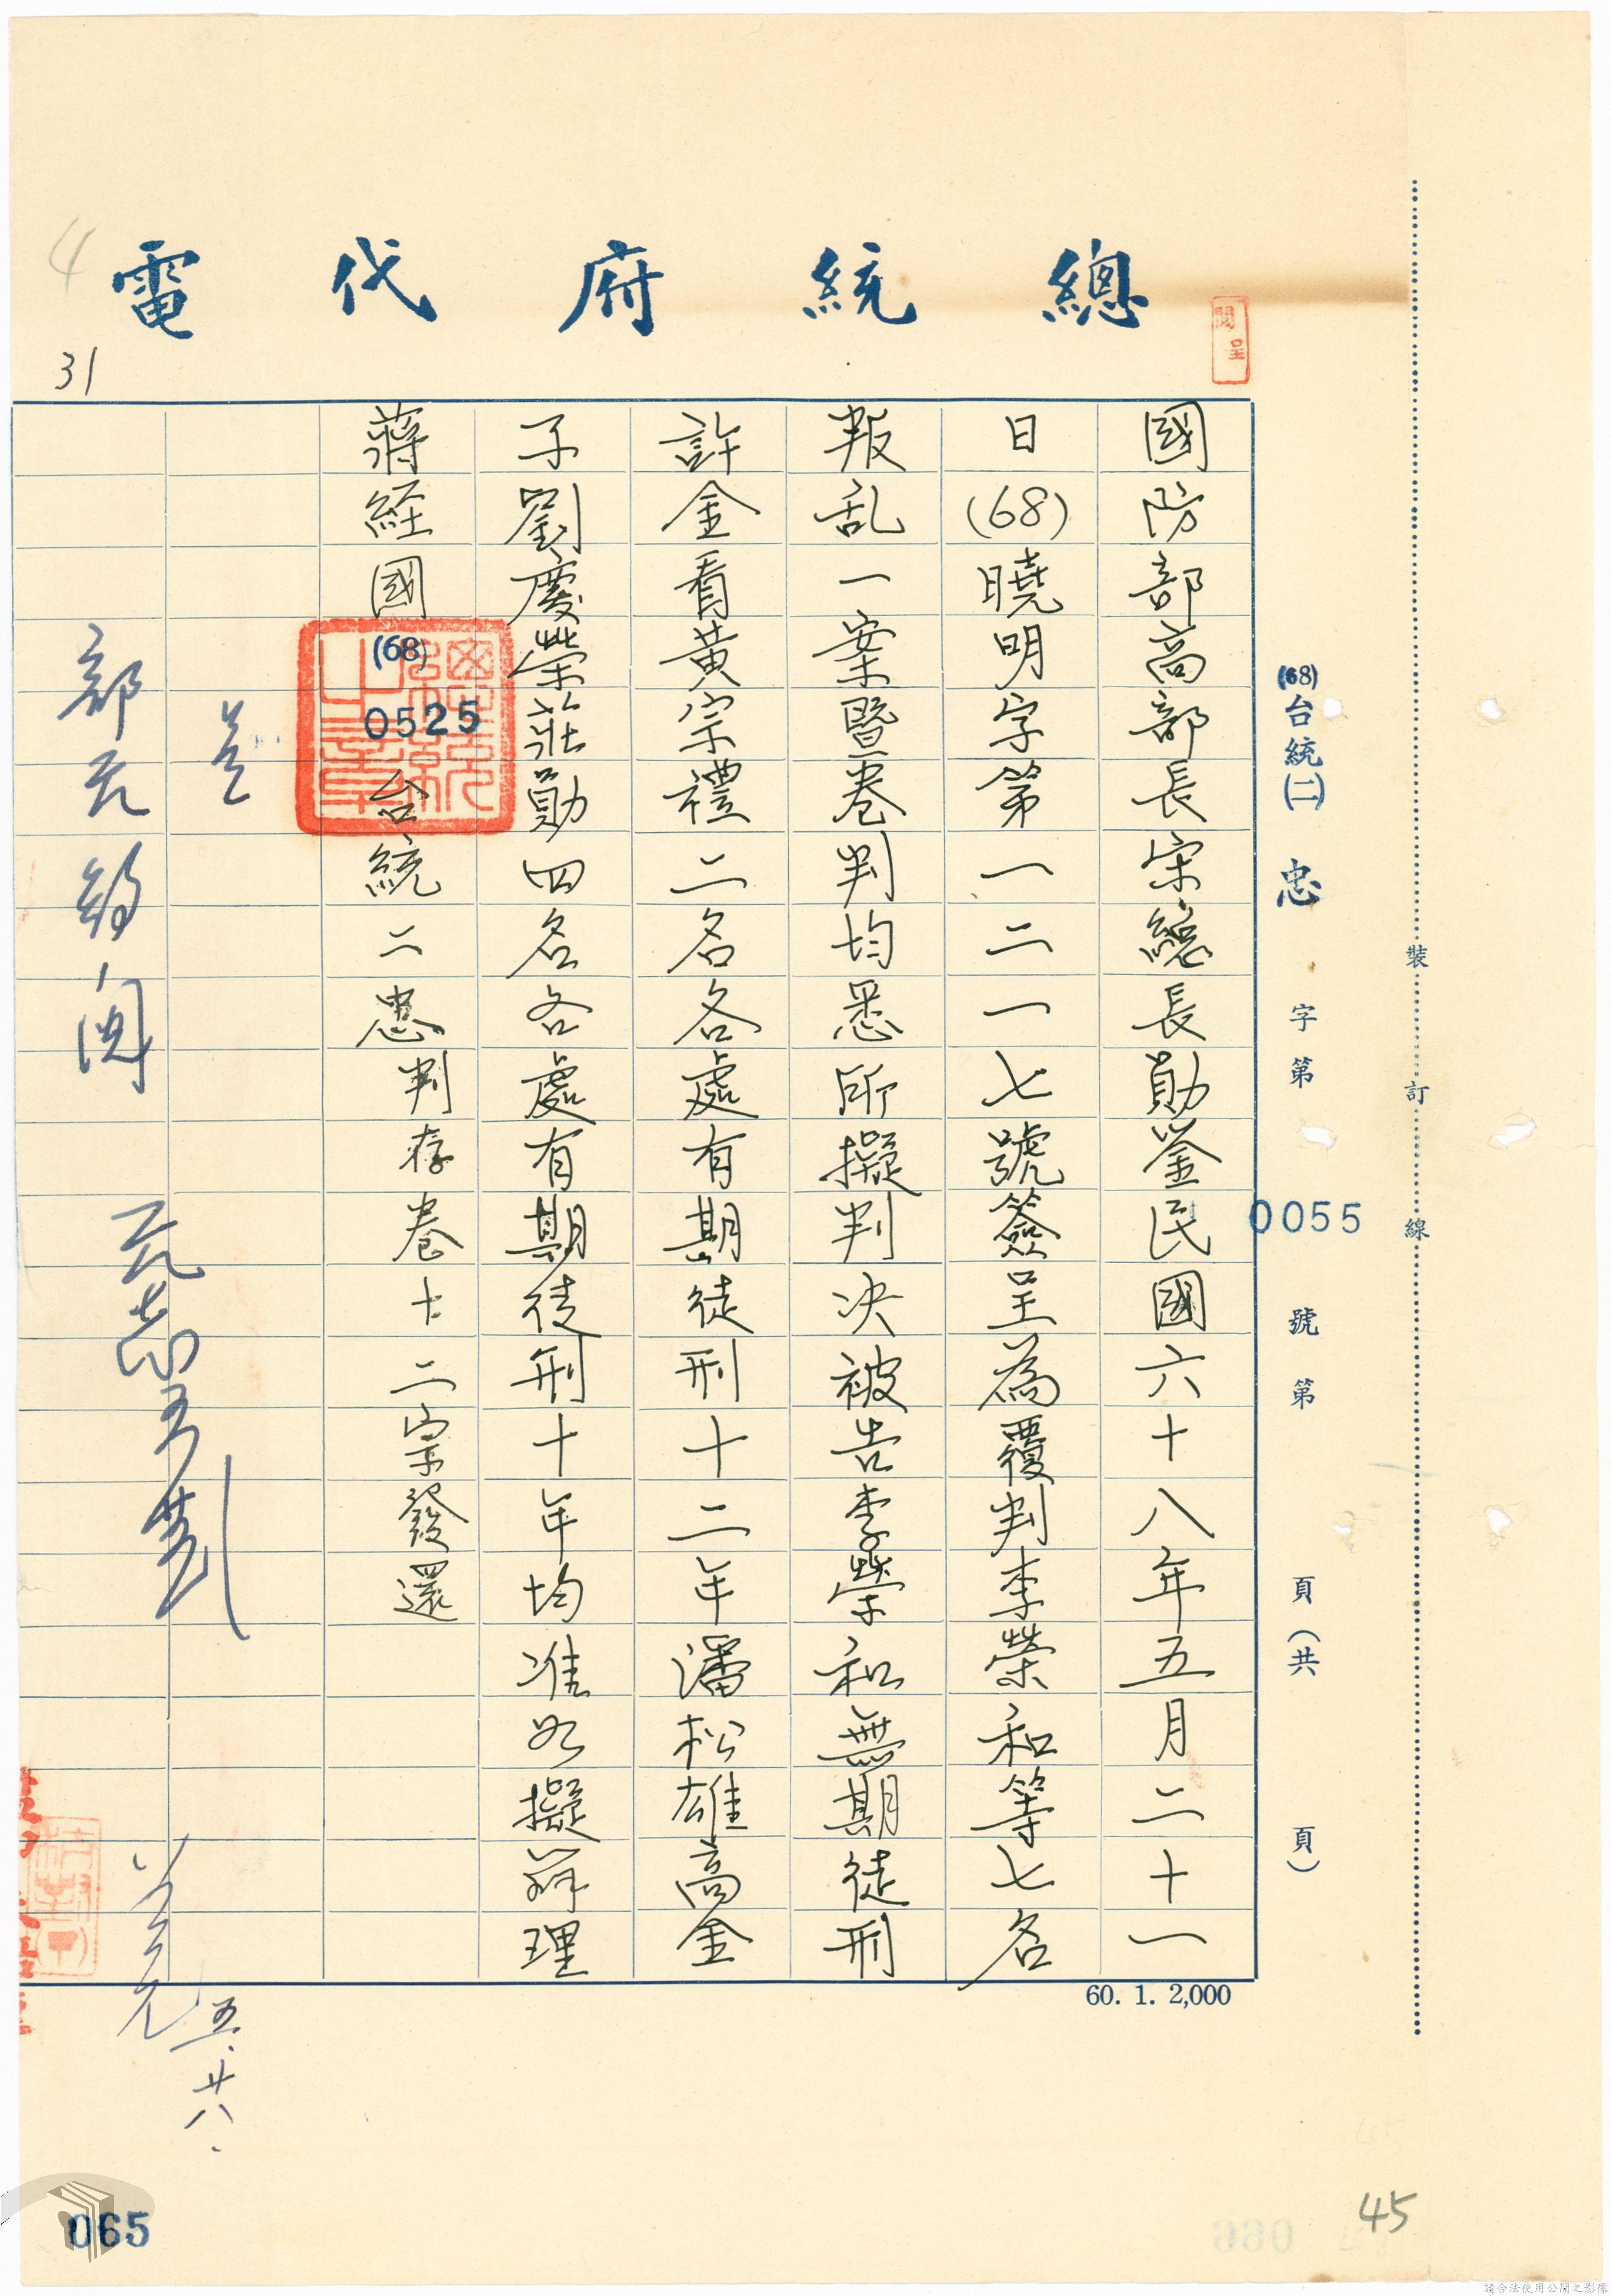 總統府代電
閱呈
(68)台統(二)忠字第0055號第頁(共頁)
裝訂線
國防部高部長宋總長勛鑒民國六十八年五月二十一
日(68)曉明字第一二一七號簽呈為覆判李榮和等七名
叛乱一案暨卷判均悉所擬判决被告李榮和無期徒刑
許金看黃宗禮二名各處有期徒刑十二年潘松雄高金
子劉慶榮莊勛四名各處有期徒刑十年均准如擬辦理
蔣経國(68)0525台統二忠判存卷十二宗發還
總統之章
五.廿八.
60. 1. 2,000
4
31
45
065
066
請合法使用公開之影像